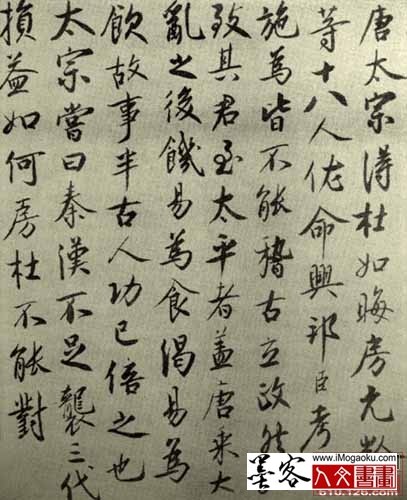 唐太宗得杜如晦房元齡
等十八人佐命興邦臣考
施為皆不能稽古立政然
致其君至太平者蓋唐乘大
亂之後饑易為食渴易為
飲故事半古人功已倍之也
太宗嘗曰秦漢不足襲三代
損益如何房杜不能對
墨客
www.iMogaoku.com
人文書畫
610.126.com